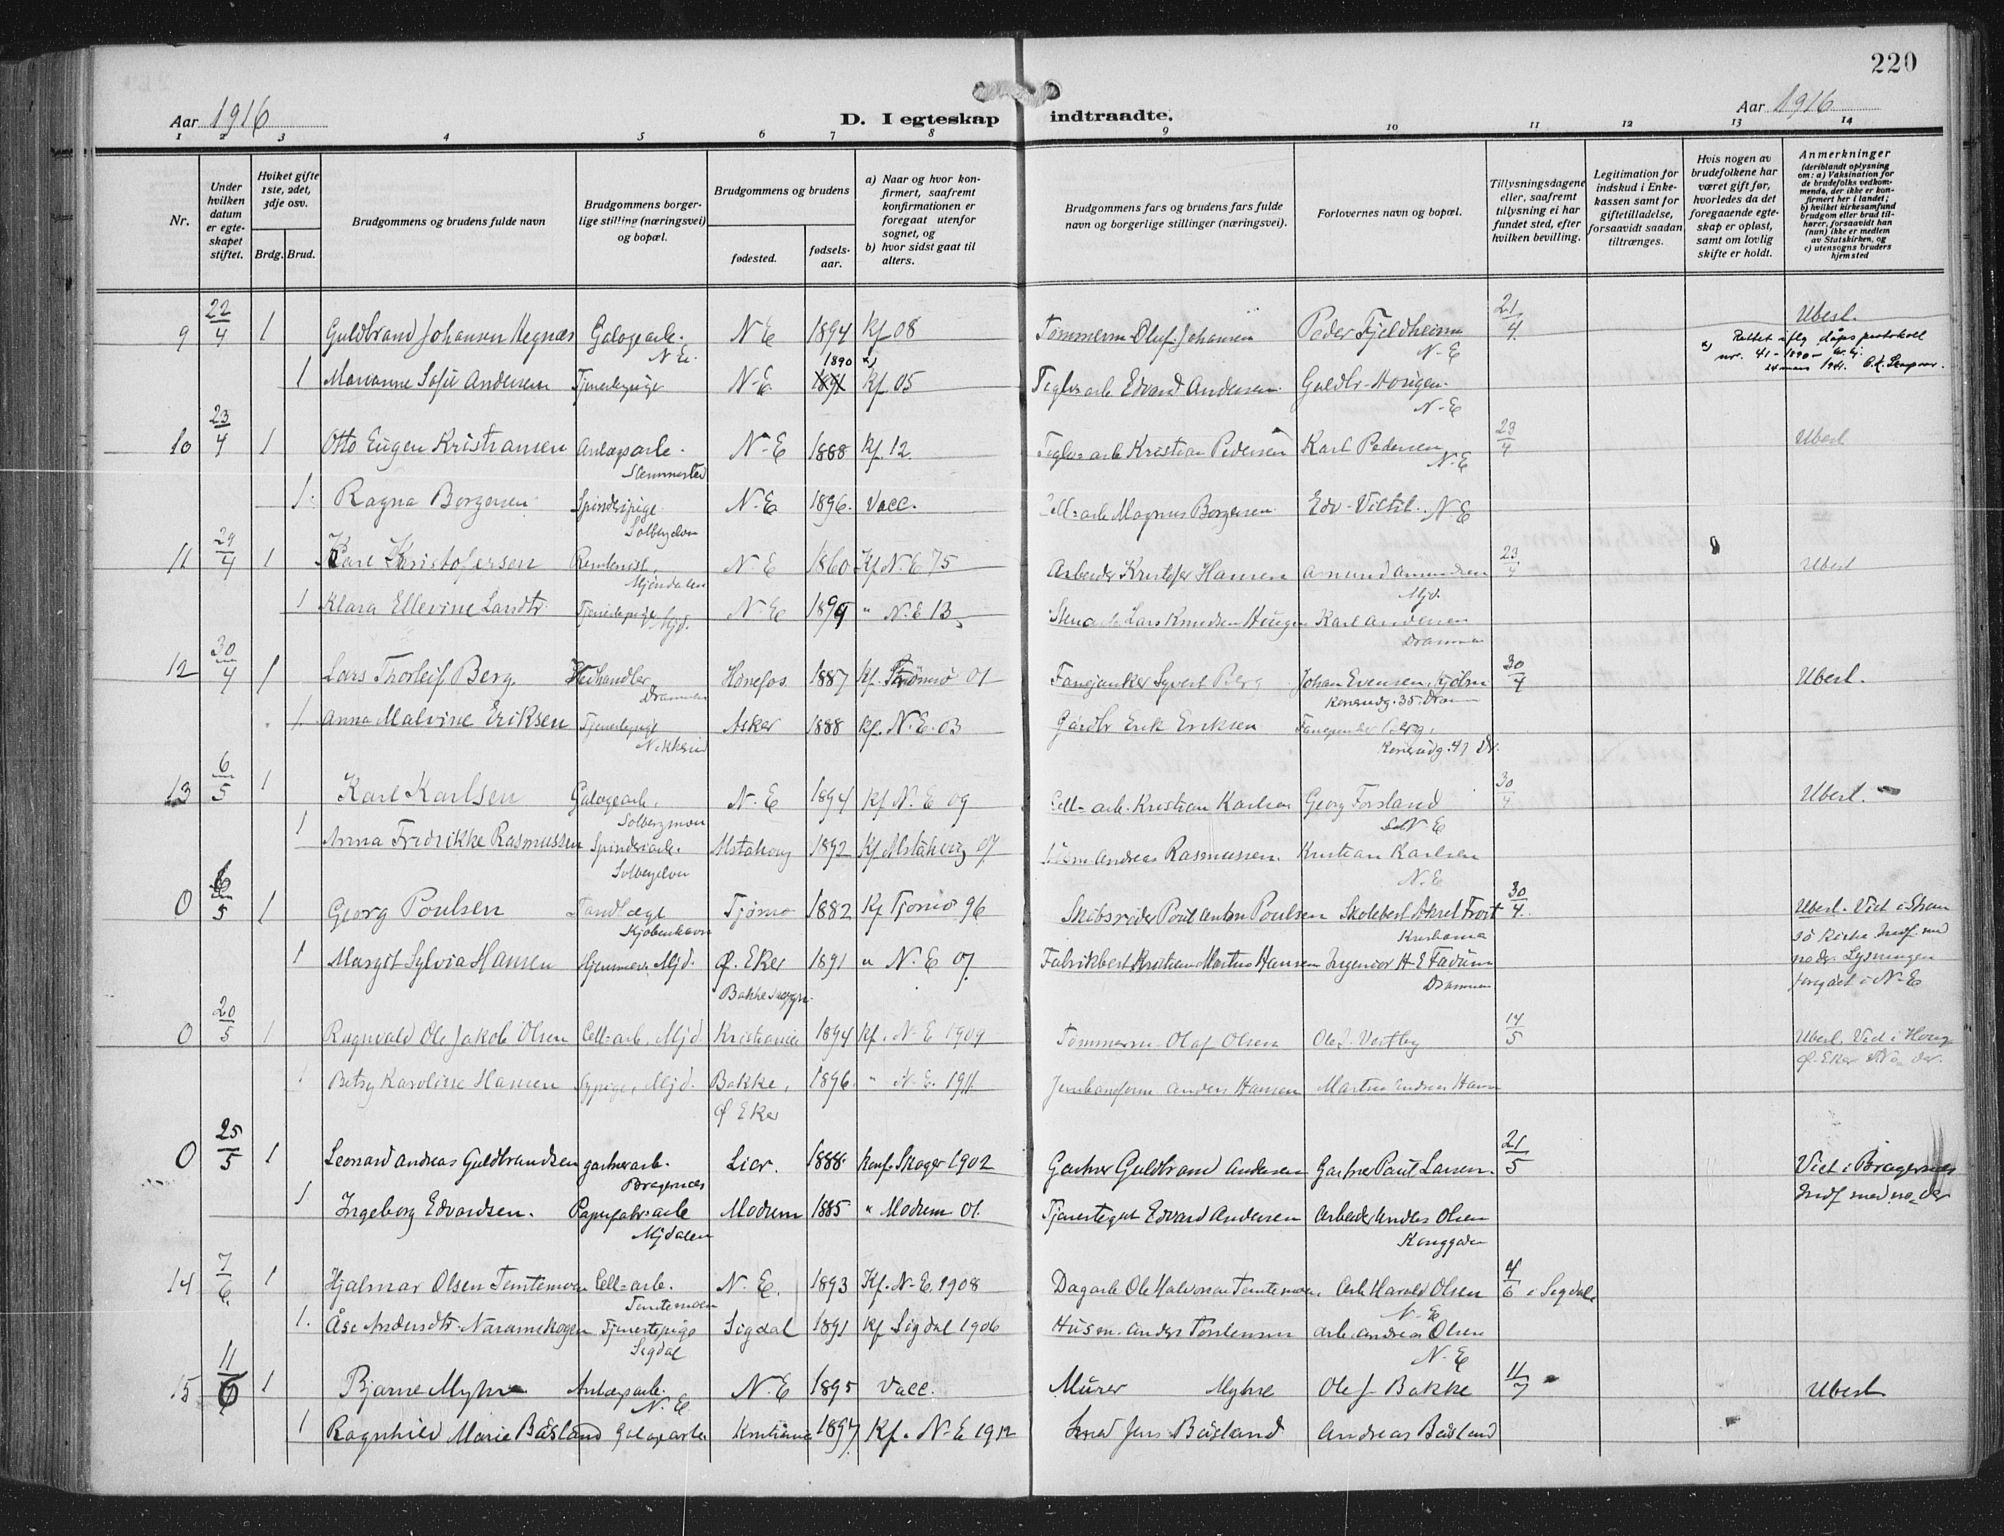 220
Aar 1916
D. I egteskap indtraadte.
Aar 1916
1 2 3 4 5 6 7 8 9 10 11 12 13 14
Nr.
Under hvilken datum er egteskapet stiftet.
Hvilket gifte 1ste, 2det, 3dje osv.
Brdg. Brud.
Brudgommens og brudens fulde navn
Brudgommens borgerlige stilling (næringsvei) og bopæl.
Brudgommens og brudens
fødested.
fødselsaar.
a) Naar og hvor konfirmert, saafremt konfirmationen er foregaat utenfor sognet, og
b) hvor sidst gaat til alters.
Brudgommens fars og brudens fars fulde navn og borgerlige stillinger (næringsvei).
Forlovernes navn og bopæl.
Tillysningsdagene eller, saafremt tillysning ei har fundet sted, efter hvilken bevilling.
Legitimation for indskud i Enkekassen samt for giftetilladelse, forsaavidt saadan tiltrænges.
Hvis nogen av brudefolkene har været gift før, hvorledes da det foregaaende egteskap er opløst, samt om lovlig skifte er holdt.
Anmerkninger
(deriblandt oplysning om: a) Vaksination for de brudefolks vedkommende, der ikke er konfirmert her i landet; b) hvilket kirkesamfund brudgom eller brud tilhører, forsaavidt han (hun) ikke er medlem av Statskirken, og c) utensogns bruders hjemsted
9 22/4 1 Guldbrand Johansen Hegnæs Galogearb. N.E. N-E 1894 Kf 08 Tømmerm. Oluf Johansen Peder Fjeldheim N-E 21/4 Ubesl.
x) Rettet iflg dåpsprotokoll nr. 41-1890
24 mars 1941.
1 Marianne Sofie Andersen Tjenestepige N-E 1891 1890 x) Kf 05 Teglv. arb Edvard Andersen Guldbr. Horgen N-E
10 23/4 1 Otto Eugen Kristiansen Anlægsarb. Slemmestad N-E 1888 Kf. 12 Teglv. arb Kristian Pedersen Karl Pedersen N-E 23/4 Ubesl
1. Ragna Borgersen Spinderipige Solbergelven N-E 1896. Vacc. Cell-arb Magnus Borgersen Edv. N-E
11 29/4 1 Karl Kristofersen Mjøndalen N-E 1860 Kf N.E 75 Arbeider Kristofer Hansen Amund Amundsen Mjd. 23/4 Ubesl
1 Klara Ellevine Tjenestepige Mjd. N-E 1895 " N.E 13 Lars Knudsen Haugen Karl Andersen Drammen
12 30/4 1 Lars Thorleif Berg Vedhandler Drammen Hønefos 1887 Kf. Strømsø 01 Fanejunker Syvert Berg Johan Evensen 30/4 Ubesl.
1 Anna Malvine Eriksen Tjenestepige Asker 1888 Kf. N.E. 03 Gaardbr Erik Eriksen Fanejunker Berg,
13 6/5 1 Karl Karlsen Galogearb. Solbergmoen N.E 1894 Kf N.E 09 Cell-arb. Kristian Karlsen Georg Forsland N-E 30/4 Ubesl.
1 Anna Fredrikke Rasmussen Spinderiarb. Solbergelven Alstahoug 1892 Kf Alstahoug 07 Andreas Rasmussen. Kristian Karlsen N.E
0 6/5 1 Georg Poulsen Tandlæge Kjøbenhavn Tjømø 1882 Kf Tjømø 96 Skibsreder Poul Anton Poulsen Skolebest Aksel Kristiania 30/4 Ubesl. Viet i Strømsø Kirke Indf. med no der. Lysningen foregaat i N-E
1 Margit Sylvia Hansen Hjemmev. Mjd. Ø. Eker 1891 " N.E 07 Fabrikbest Kristian Martin Hansen Ingeniør H. E Drammen
0 20/5 1 Ragnvald Ole Jakob Olsen Cell-arb. Mjd. Kristiania 1894 Kf. N-E 1909 Tømmerm Olaf Olsen Ole J. Vestby 14/5 Ubesl. Viet i Houg Ø. Eker No der.
1 Betsy Karoline Hansen Sypige, Mjd. Bakke, Ø Eker 1896 " N.E. 1911 Anders Hansen
0 25/5 1 Leonard Andreas Guldbrandsen gartnerarb. Bragernæs Lier. 1888. Konf. Skoger 1902 Gartner Guldbrand Andersen Gartner Paul Larsen. 21/5 Viet i Bragernæs Indf med no der
1 Ingeborg Edvardsen. Papirfabr. arb Mjdalen Modum 1885 " Modum 01. Edvard Andersen Arbeider Anders Olsen
14 7/6 1 Hjalmar Olsen Temtemoen Cell-arb. Temtemoen N.E. 1893 Kf. N-E. 1908 Dagarb Ole Halvorsen Temtemoen Arb Harald Olsen N-E 4/6 i Sigdal
1. Åse Andersdtr. Narumskogen Tjenestepige Sigdal Sigdal 1891 Kf Sigdal 1906 Husm. Anders Torstensen arb. Andreas Olsen N-E
15 11/6 1 Bjarne Myhre Anlægsarb. N.E N.E 1895 Vacc. Murer Myhre Ole J. Bakke 11/7 Ubesl
1 Ragnhild Marie Båsland Galogearb. Kristiania 1897 Kf. N-E 1912 Jens Båsland Andreas Båsland